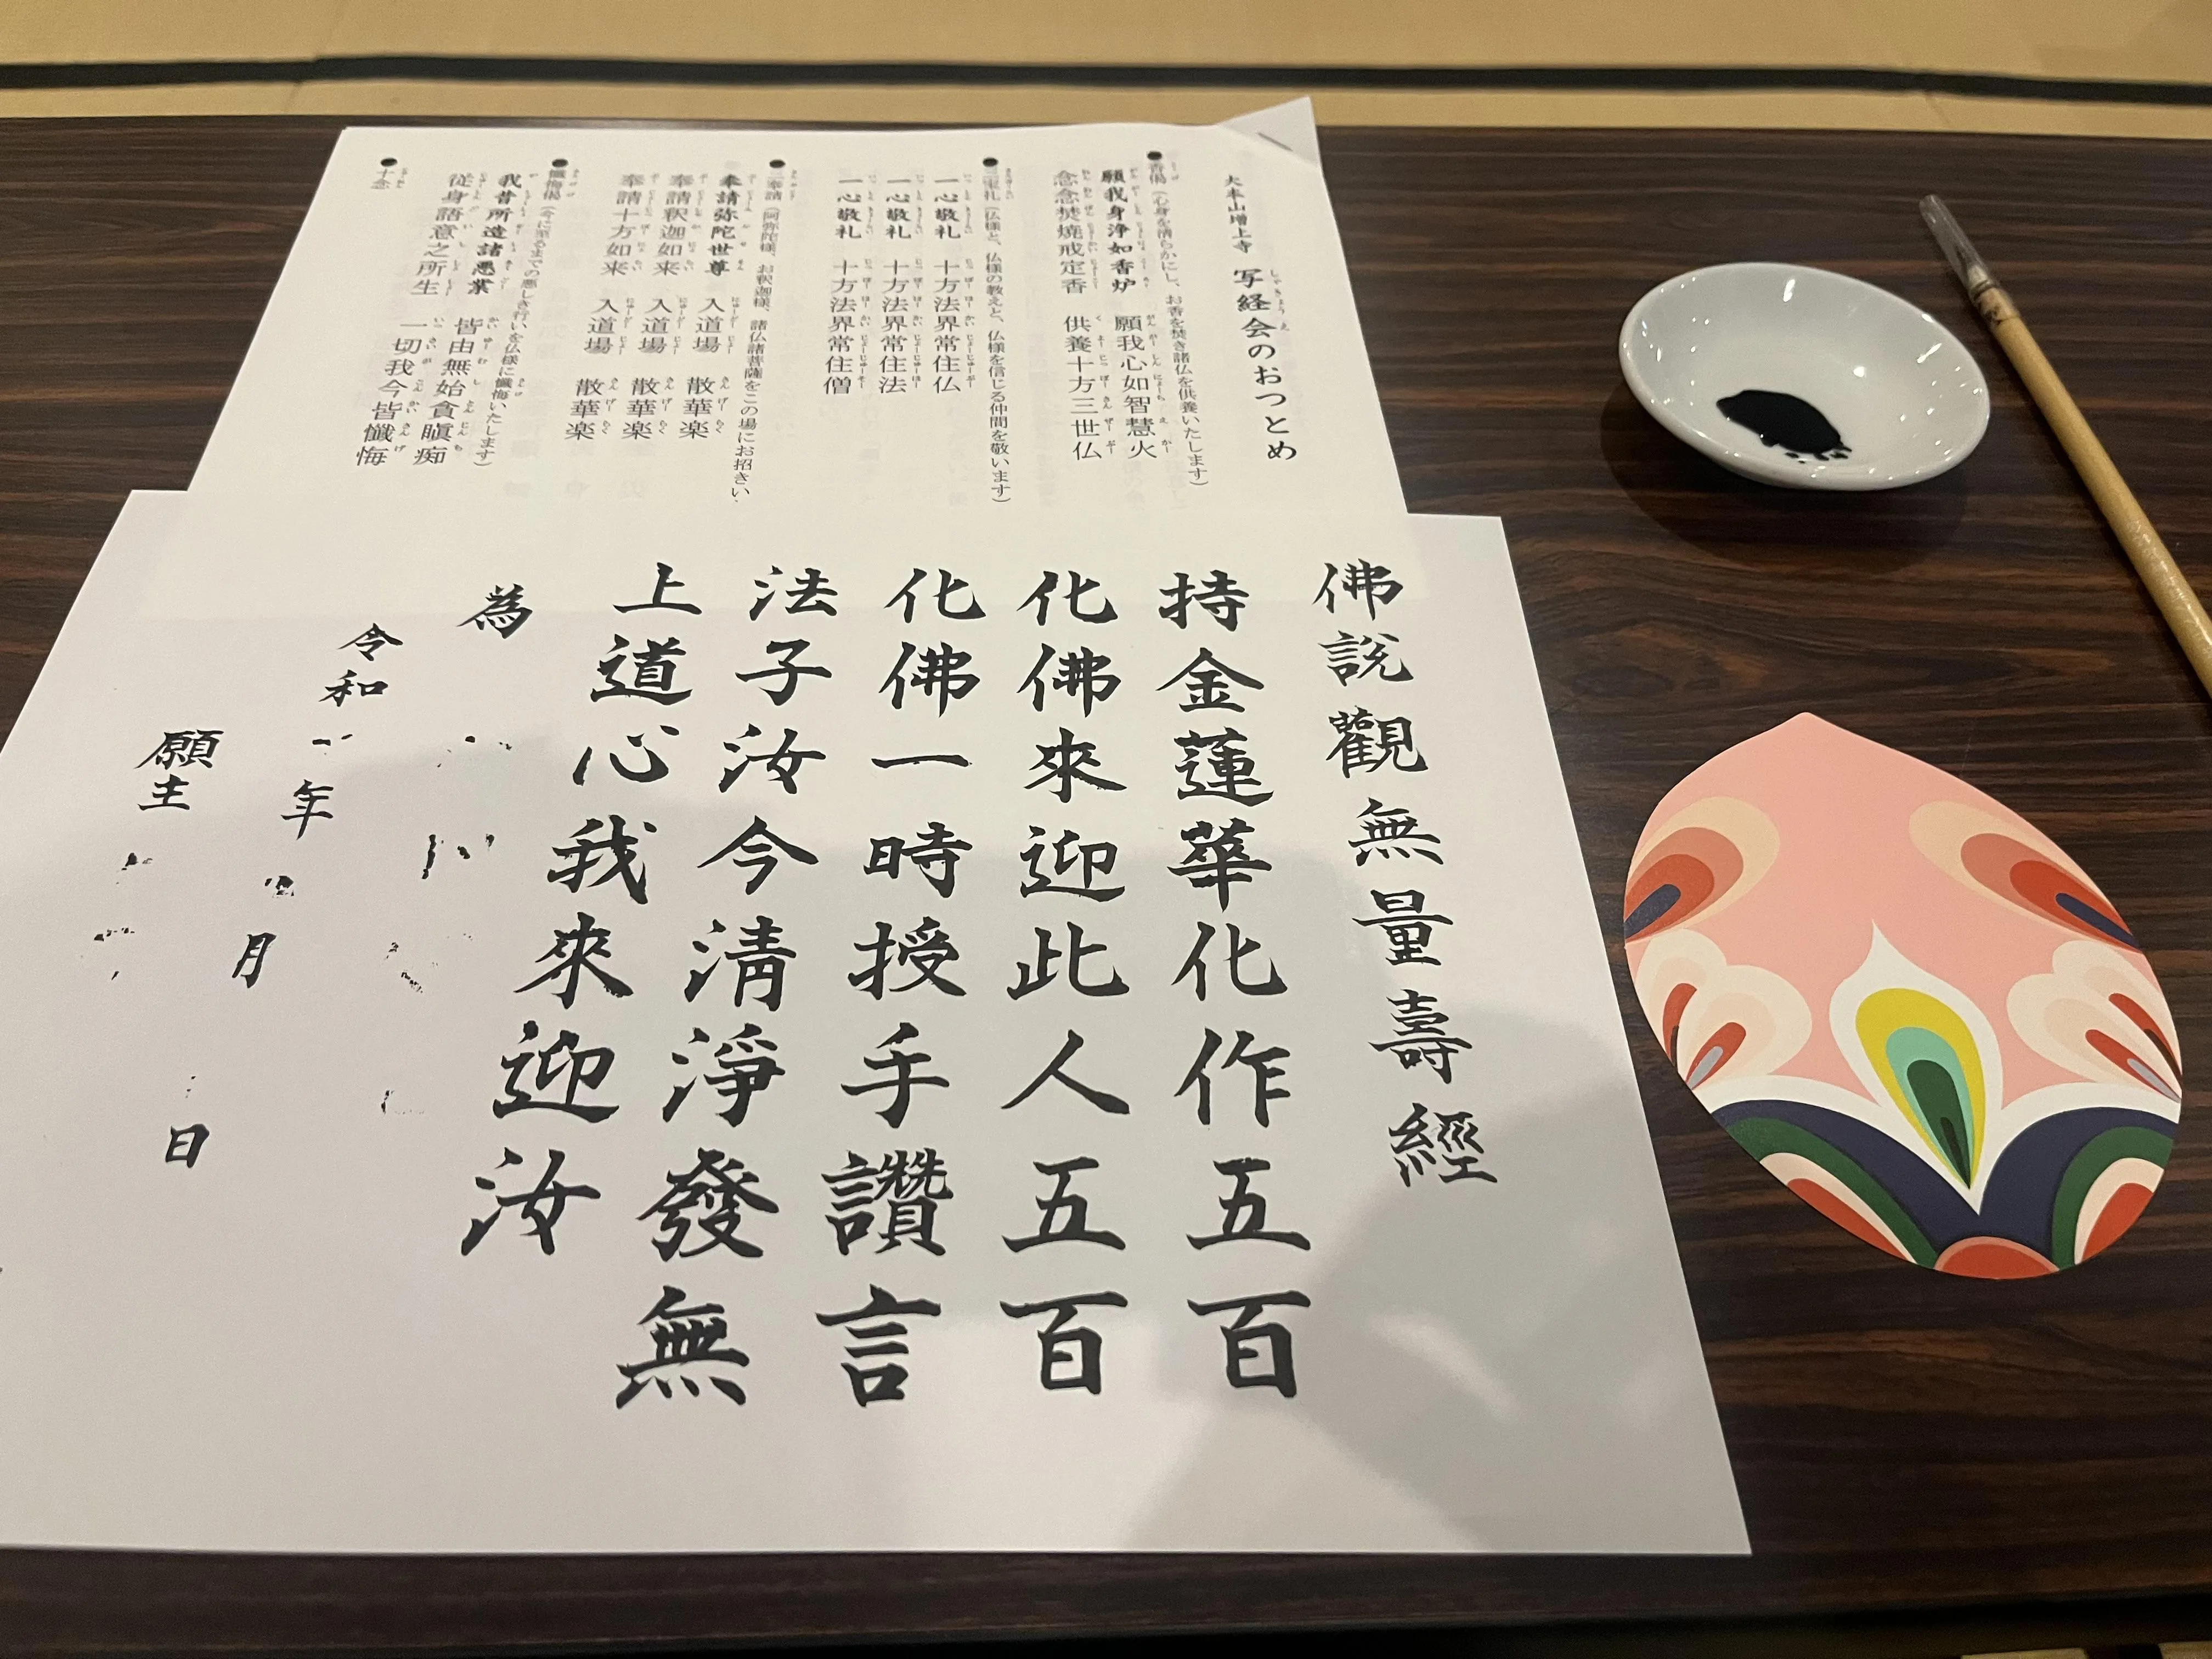 大本山増上寺 写経会のおつとめ
●香偈(心身を清らかにし、お香を焚き諸仏を供養いたします)
願我身浄如香炉 願我心如智慧火
念念焚焼戒定香 供養十方三世仏
●三宝礼(仏様と、仏様の教えと、仏様を信じる仲間を敬います)
一心敬礼 十方法界常住仏
一心敬礼 十方法界常住法
一心敬礼 十方法界常住僧
●三奉請(阿弥陀様、お釈迦様、諸仏諸菩薩をこの場にお招きい
奉請弥陀世尊 入道場 散華楽
奉請釈迦如来 入道場 散華楽
奉請十方如来 入道場 散華楽
●懺悔偈(今に至るまでの悪しき行いを仏様に懺悔いたします)
我昔所造諸悪業 皆由無始貪瞋痴
従身語意之所生 一切我今皆懺悔
●十念
佛說觀無量壽經
持金蓮華化作五百
化佛來迎此人五百
化佛一時授手讚言
法子汝今清淨發無
上道心我來迎汝
為
令和 年 月 日
願主